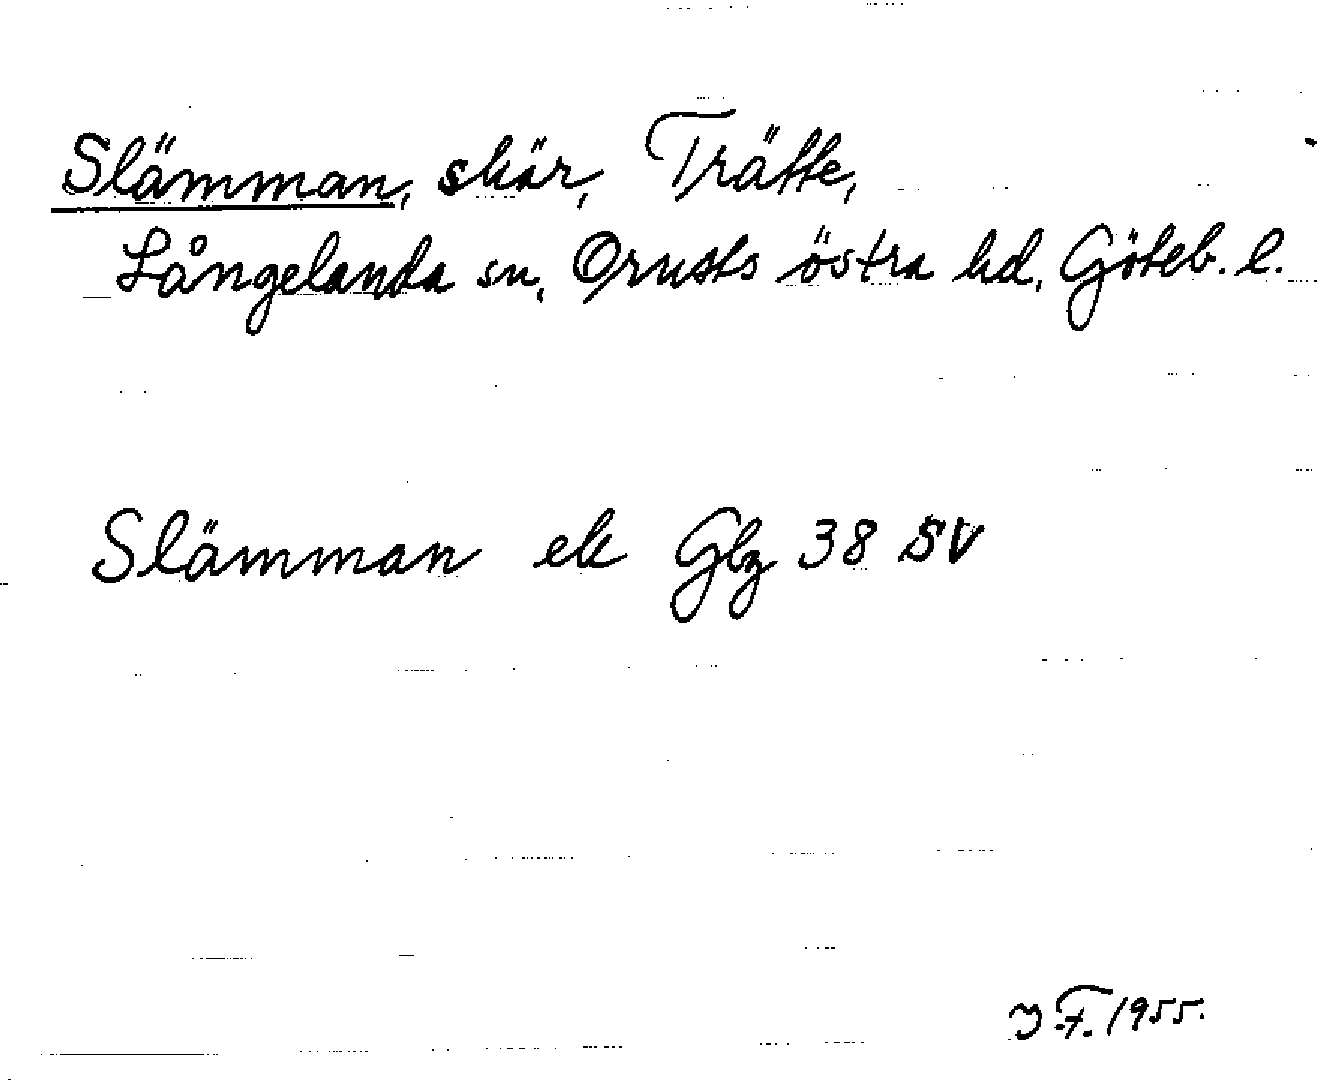 Slämman, skär, Trätte,
Långelanda sn, Orusts östra hd, Göteb. l.
Slämman ek Gbz 38 SV
J F. 1955.